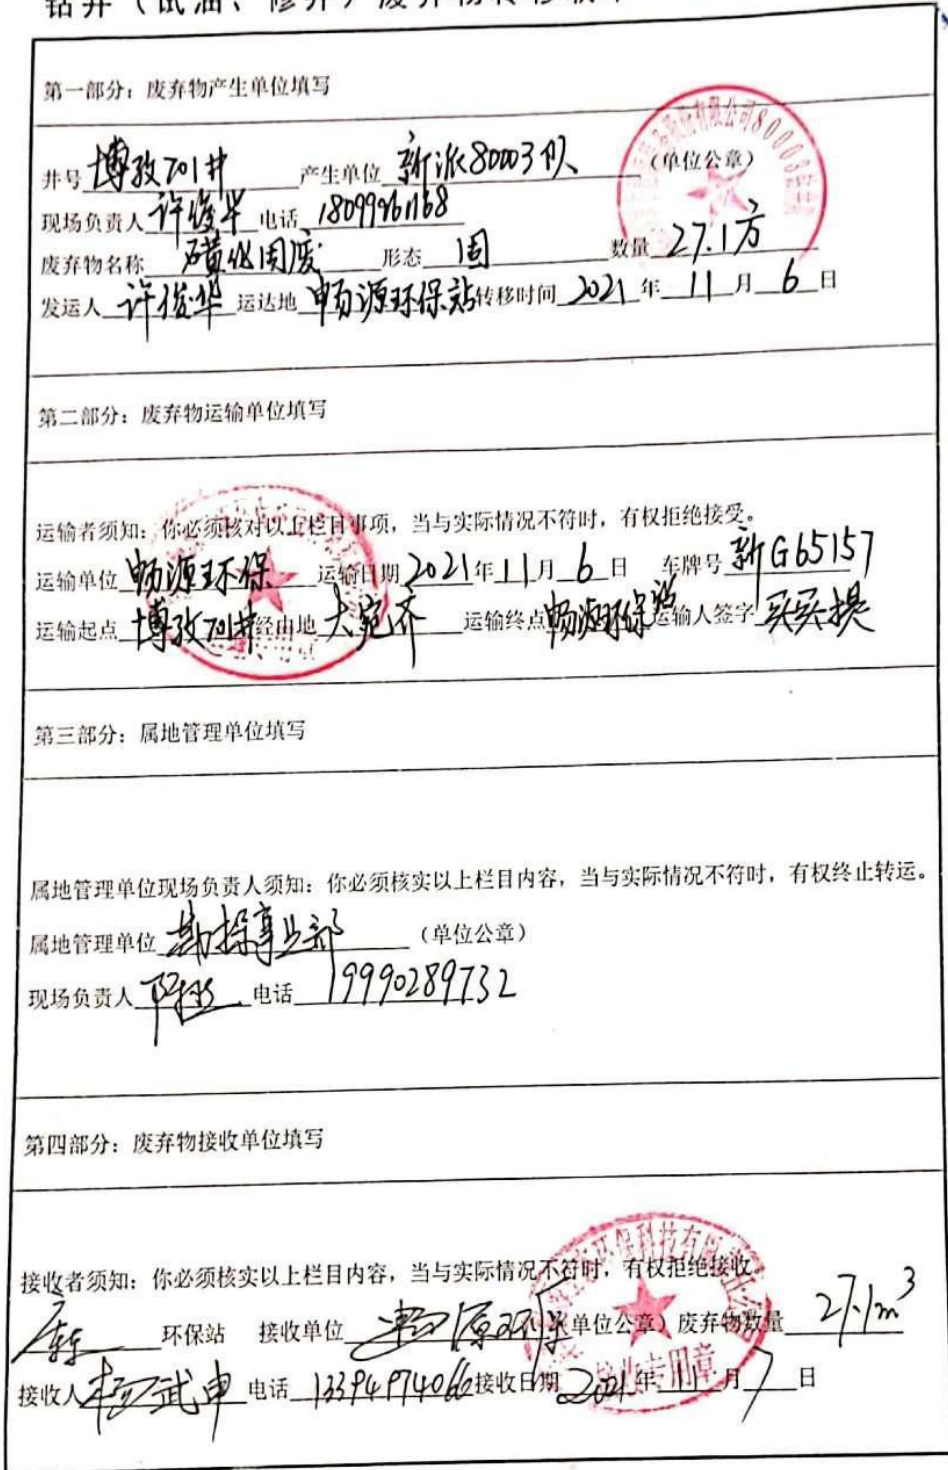 钻井（试油、修井）废弃物转移联单
第一部分：废弃物产生单位填写
井号 博孜701井 产生单位 新派80003队 （单位公章）
现场负责人 许俊华 电话 18099261168
废弃物名称 磺化固废 形态 固 数量 27.1方
发运人 许俊华 运达地 畅源环保站 转移时间 2021 年 11 月 6 日
第二部分：废弃物运输单位填写
运输者须知：你必须核对以上栏目事项，当与实际情况不符时，有权拒绝接受。
运输单位 畅源环保 运输日期 2021 年 11 月 6 日 车牌号 新G65157
运输起点 博孜701井 经由地 大宛齐 运输终点 畅源环保站 运输人签字 买买提
第三部分：属地管理单位填写
属地管理单位现场负责人须知：你必须核实以上栏目内容，当与实际情况不符时，有权终止转运。
属地管理单位 勘探事业部 （单位公章）
现场负责人 电话 19990289732
第四部分：废弃物接收单位填写
接收者须知：你必须核实以上栏目内容，当与实际情况不符时，有权拒绝接收。
环保站 接收单位 畅源环保（单位公章）废弃物数量 27.1m³
接收人 电话 13394974066 接收日期 2021 年 11 月 7 日
接收专用章